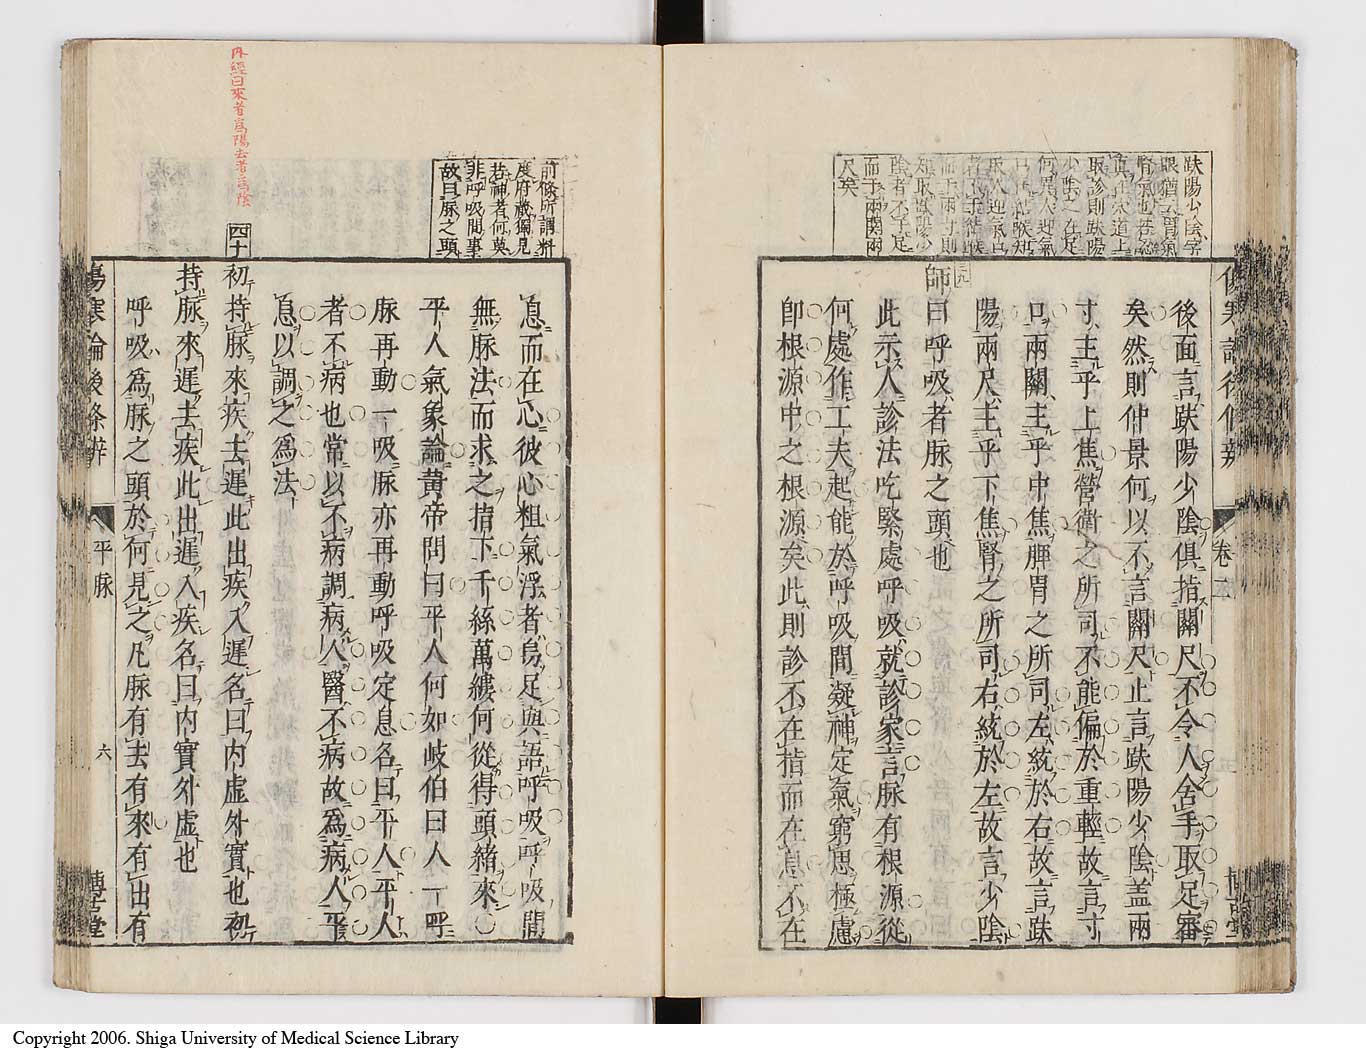 趺陽少陰字
眼猶云胃氣
腎氣也若認
真在穴道上
取診則趺陽
少陰之在足
何異人迎氣
口在結喉知
取人迎氣口
者不于結喉
而于兩寸則
知取趺陽少
陰者不于足
而于兩關兩
尺矣
後面言趺陽少陰俱指關尺不令人舍手取足審
矣然則仲景何以不言關尺止言趺陽少陰蓋兩
寸主乎上焦營衛之所司不能偏於重輕故言寸
口兩關主乎中焦脾胃之所司左統於右故言趺
陽兩尺主乎下焦腎之所司右統於左故言少陰
師曰呼吸者脉之頭也
此示人診法吃緊處呼吸就診家言脉有根源從
何處作工夫起能於呼吸間凝神定氣窮思極慮
卽根源中之根源矣此則診不在指而在息不在
卷二
前條所謂料
度府藏獨見
若神者何莫
非呼吸間事
故曰脉之頭
息而在心彼心粗氣浮者烏足與語呼吸呼吸間
無脉法而求之指下千絲萬縷何從得頭緒來
平人氣象論黃帝問曰平人何如岐伯曰人一呼
脉再動一吸脉亦再動呼吸定息名曰平人平人
者不病也常以不病調病人醫不病故爲病人平
息以調之爲法
四十
初持脉來疾去遲此出疾入遲名曰内虛外實也初
持脉來遲去疾此出遲入疾名曰内實外虛也
呼吸爲脉之頭於何見之凡脉有去有來有出有
内經曰來者爲陽去者爲陰
傷寒論後條辨
平脉
六
博古堂
Copyright 2006. Shiga University of Medical Science Library